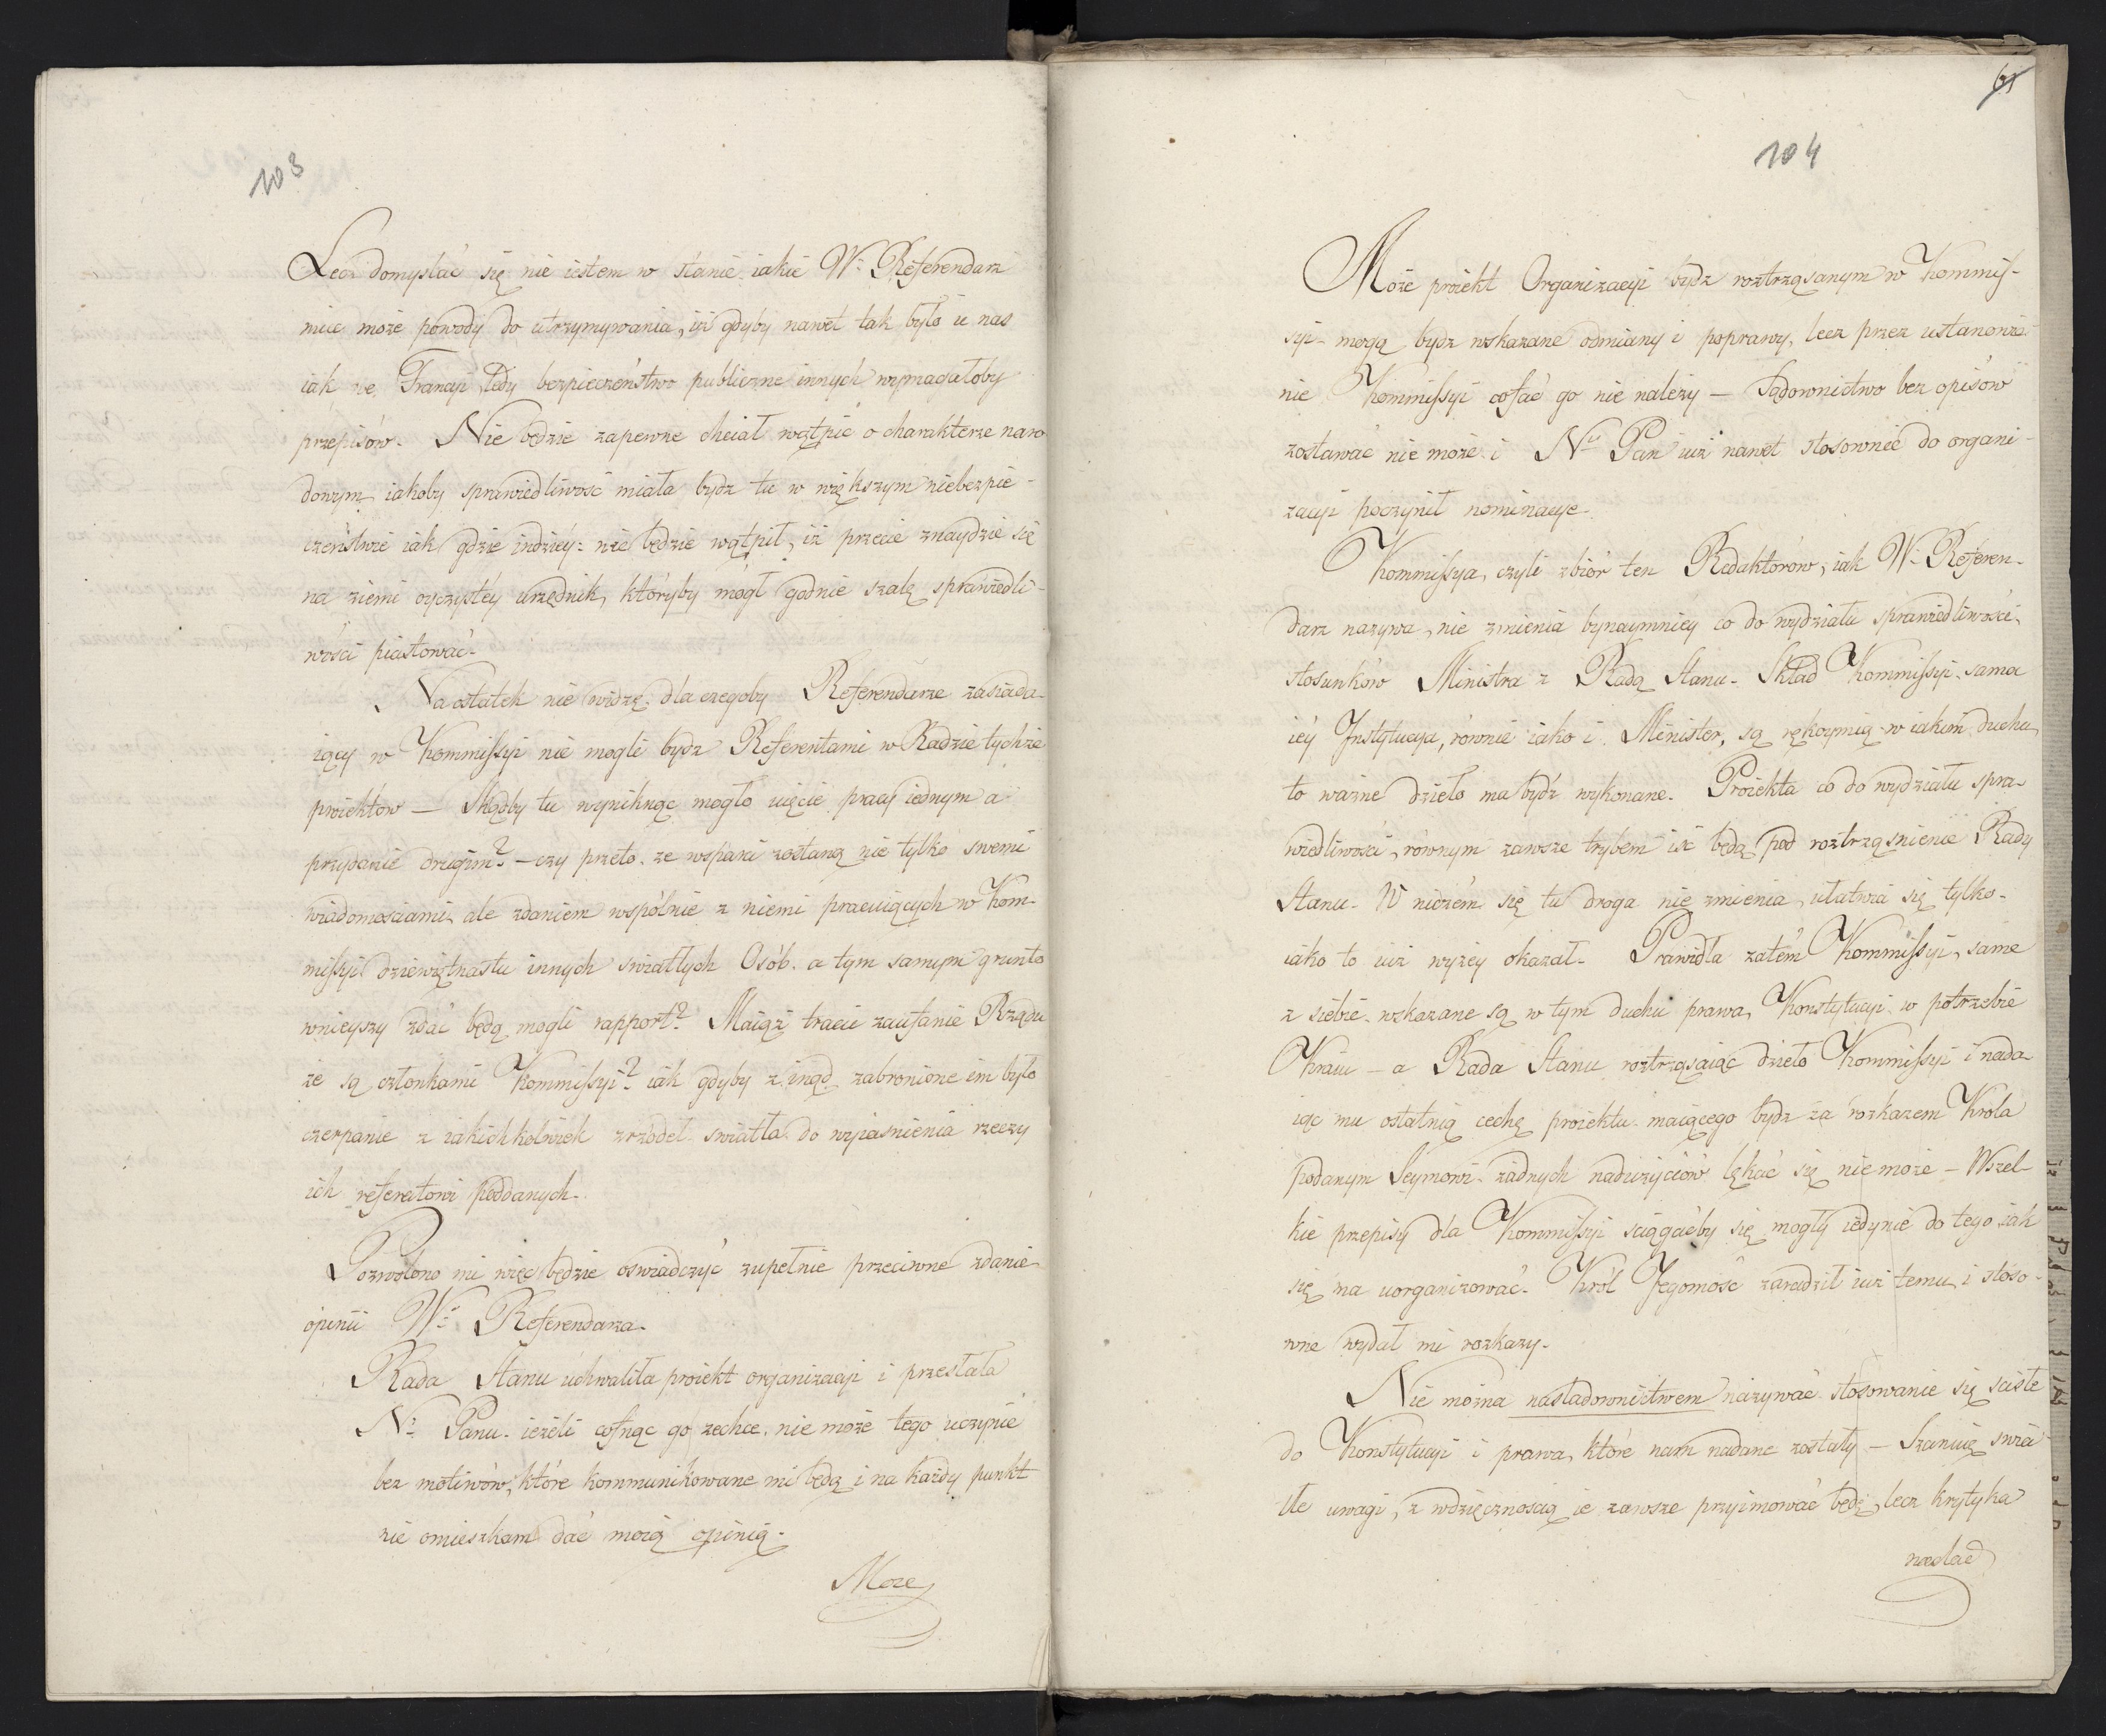 103
Lecz domyslać się nie iestem w stanie iakie W. Referendarz
mieć może powody do utrzymywania, iż gdyby nawet tak było u nas
iak we Francji, tedy bezpieczeństwo publiczne innych wymagałoby
przepisów. Nie będzie zapewne chciał wątpić o charakterze naro
dowym, iakoby sprawiedliwość miała bydz tu w większym niebezpie-
czeństwie iak gdzie indziéy: nie będzie wątpił, iż przecie znaydzie się
na ziemi oyczystéy urzędnik, któryby mógł godnie szalę sprawiedli-
wości piastować.
Na ostatek nie widzę dla czegoby Referendarze zasiada-
iący w Kommissyi nie mogli bydz Referentami w Radzie tychże
proiektow — Skądby tu wyniknąc mogło uięcie pracy iednym a
przydanie drugim? — czy przeto, ze wsparci zostaną nie tylko swemi
wiadomosciami, ale zdaniem wspólnie z niemi pracuiących w Kom-
missyi dziewiętnastu innych swiatłych Osób, a tym samym grunto
wnieyszy zdać będą mogli rapport? Maiąż tracić zaufanie Rządu
że są członkami Kommissyi? iak gdyby z inąd zabronione im było
czerpanie z iakichkolwiek zrzódeł swiatła do wyiasnienia rzeczy
ich referatowi poddanych.
Pozwolono mi więc będzie oswiadczyć zupełnie przeciwne zdanie
opinii Wo Referendarza.
Rada Stanu uchwaliła proiekt organizacyi i przesłała
N. Panu. ieżeli cofnąc go zechce, nie może tego uczynić
bez motiwów, które kommunikowane mi będą i na każdy punkt
nie omieszkam dać moią opinią.
Moze
61
104
Może proiekt Organizacyi bydz roztrząsanym w Kommis-
syi- mogą bydz wskazane odmiany i poprawy, lecz przez ustanowie
nie Kommissyi cofać go nie należy — Sądownictwo bez opisów
zostawać nie może i Ny Pan iuż nawet stosownie do organi-
zacyi poczynił nominacye.
Kommissya, czyli zbiór ten Redaktorów, iak W. Referen-
darz nazywa, nie zmienia bynaymniey co do wydziału sprawiedliwości,
stosunków Ministra z Radą Stanu. Skład Kommissyi, sama
iéy Instytucya, równie iako i Minister, są rękoymią w iakim duchu
to ważne dzieło ma bydź wykonane. Proiekta co do wydziału spra-
wiedliwości, równym zawsze trybem iść będą pod roztrząsnienie Rady
Stanu. W niczém się tu droga nie zmienia, ułatwia się tylko.
iako to iuż wyżey okazał. Prawidła zatém Kommissyi, same
z siebie wskazane są w tym duchu prawa, Konstytucyi w potrzebie
Kraiu — a Rada Stanu roztrząsaiąc dzieło Kommissyi i nada
iąc mu ostatnią cechę proiektu maiącego bydz za rozkazem Króla
podanym Seymowi żadnych nadużyciów lękać się nie może — Wszel-
kie przepisy dla Kommissyi sciągaćby się mogły iedynie do tego iak
się ma uorganizować. Król Jegomość zaradził iuż temu, i stoso-
wne wydał mi rozkazy.
Nie można nasladownictwem nazywać stosowanie się sciśle
do Konstytucyi i prawa, które nam nadane zostały — Szanuię swia
tłe uwagi, z wdzięcznoscią ie zawsze przyimować będę, lecz krytyka